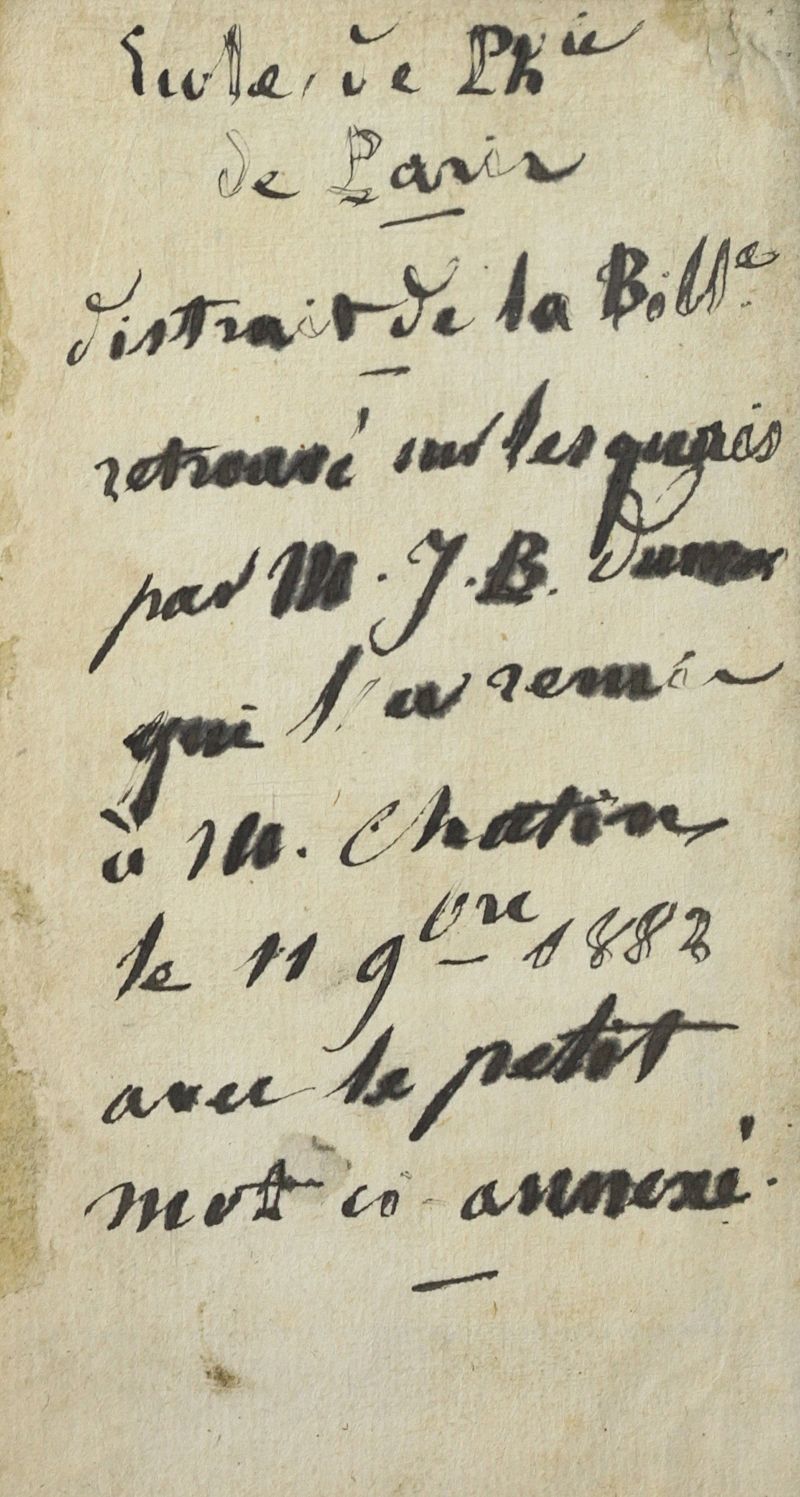 Ecole de Phie
de Paris
distrait de la Bibl
retrouvé sur les quais
par M. J. B. Dumas
qui l'a remis
à M. Chatin
le 11 9bre 1882
avec le petit
mot ci-annexé.